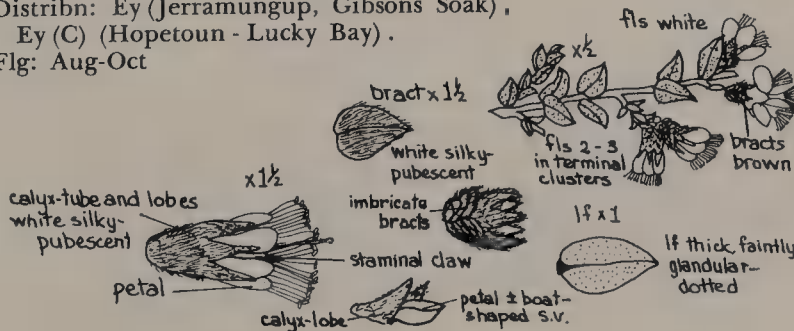 Distribn: Ey (Jerramungup, Gibsons Soak),
Ey (C) (Hopetoun - Lucky Bay).
Flg: Aug-Oct
fls white
x½
bract x 1½
white silky-
pubescent
fls 2-3
in terminal
clusters
bracts
brown
x1½
calyx-tube and lobes
white silky-
pubescent
imbricate
bracts
lf x 1
staminal claw
lf thick, faintly
glandular-
dotted
petal
calyx-lobe
petal ± boat-
shaped s.v.